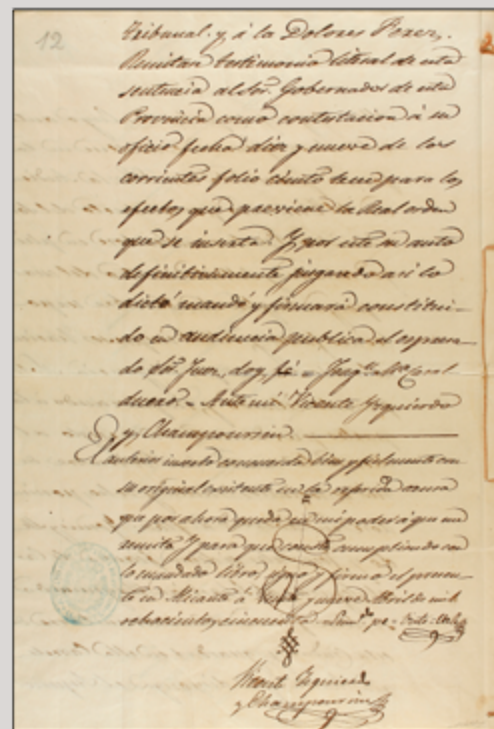 12
tribunal y á la Dolores Perez.
Remitase testimonio literal de esta
sentencia al Sor. Gobernador de esta
Provincia como contestacion á su
oficio fecha diez y nueve de los
corrientes folio ciento para los
efectos que previene la Real orden
que se inserta. Y por este su auto
definitivamente juzgando asi lo
dictó mandó y firmará constitui-
do en audiencia publica el espresa-
do Sor. Juez, doy fé =
Antemi Vicente Yzquierdo
y Champourcin
anterior inserto concuerda bien y fielmente con
su original en la referida causa
que por ahora queda en mi poder á que me
remito. Y para que conste cumpliendo con
lo mandado libro, signo y firmo el presen-
te en Alicante á y nueve Abril de mil
ochocientos cincuenta
Vicente Yzquierdo
y Champourcin